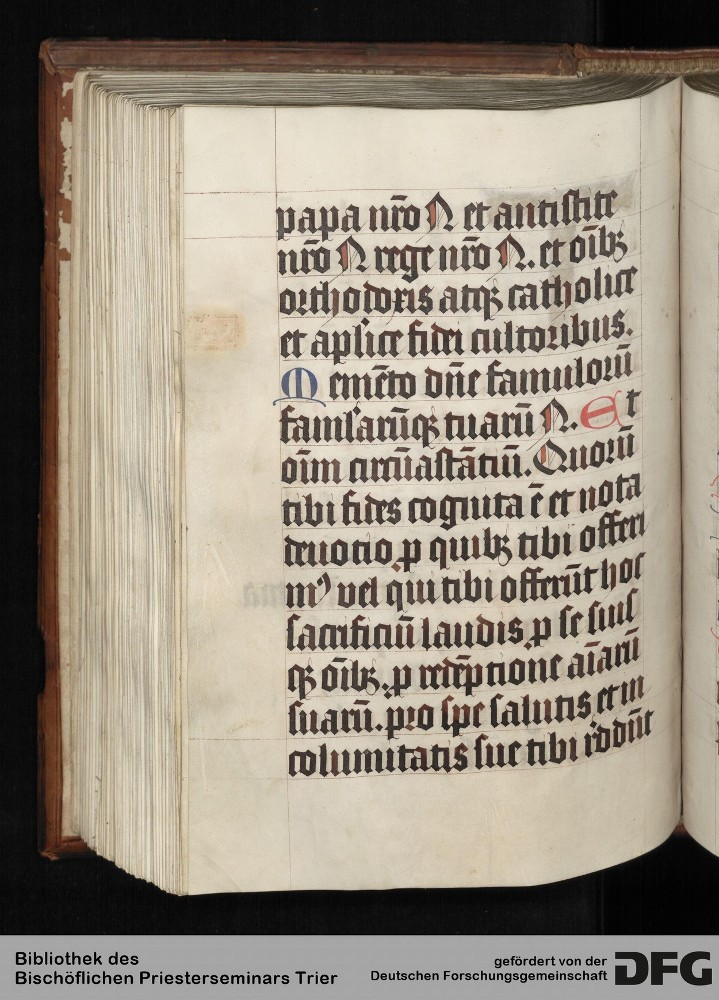 papa nr̄o N et antistite
nr̄o N rege nr̄o N. et oībꝫ
orthodoxis atqꝫ catholice
et aplice fidei cultoribus.
Memēto dn̄e famulorū
famlarūqꝫ tuarū N. Et
oīm circūastātiū. Quorū
tibi fides cognita ē et nota
deuotio ꝓ quibꝫ tibi offeri
mꝰ vel qui tibi offerūt hoc
sacrificiū laudis ꝓ se suis
qꝫ oībꝫ. ꝓ redēptione aīarū
suarū. pro spe salutis et in
columitatis sue tibi r̄ddūt
Bibliothek des
Bischöflichen Priesterseminars Trier
gefördert von der
Deutschen Forschungsgemeinschaft DFG